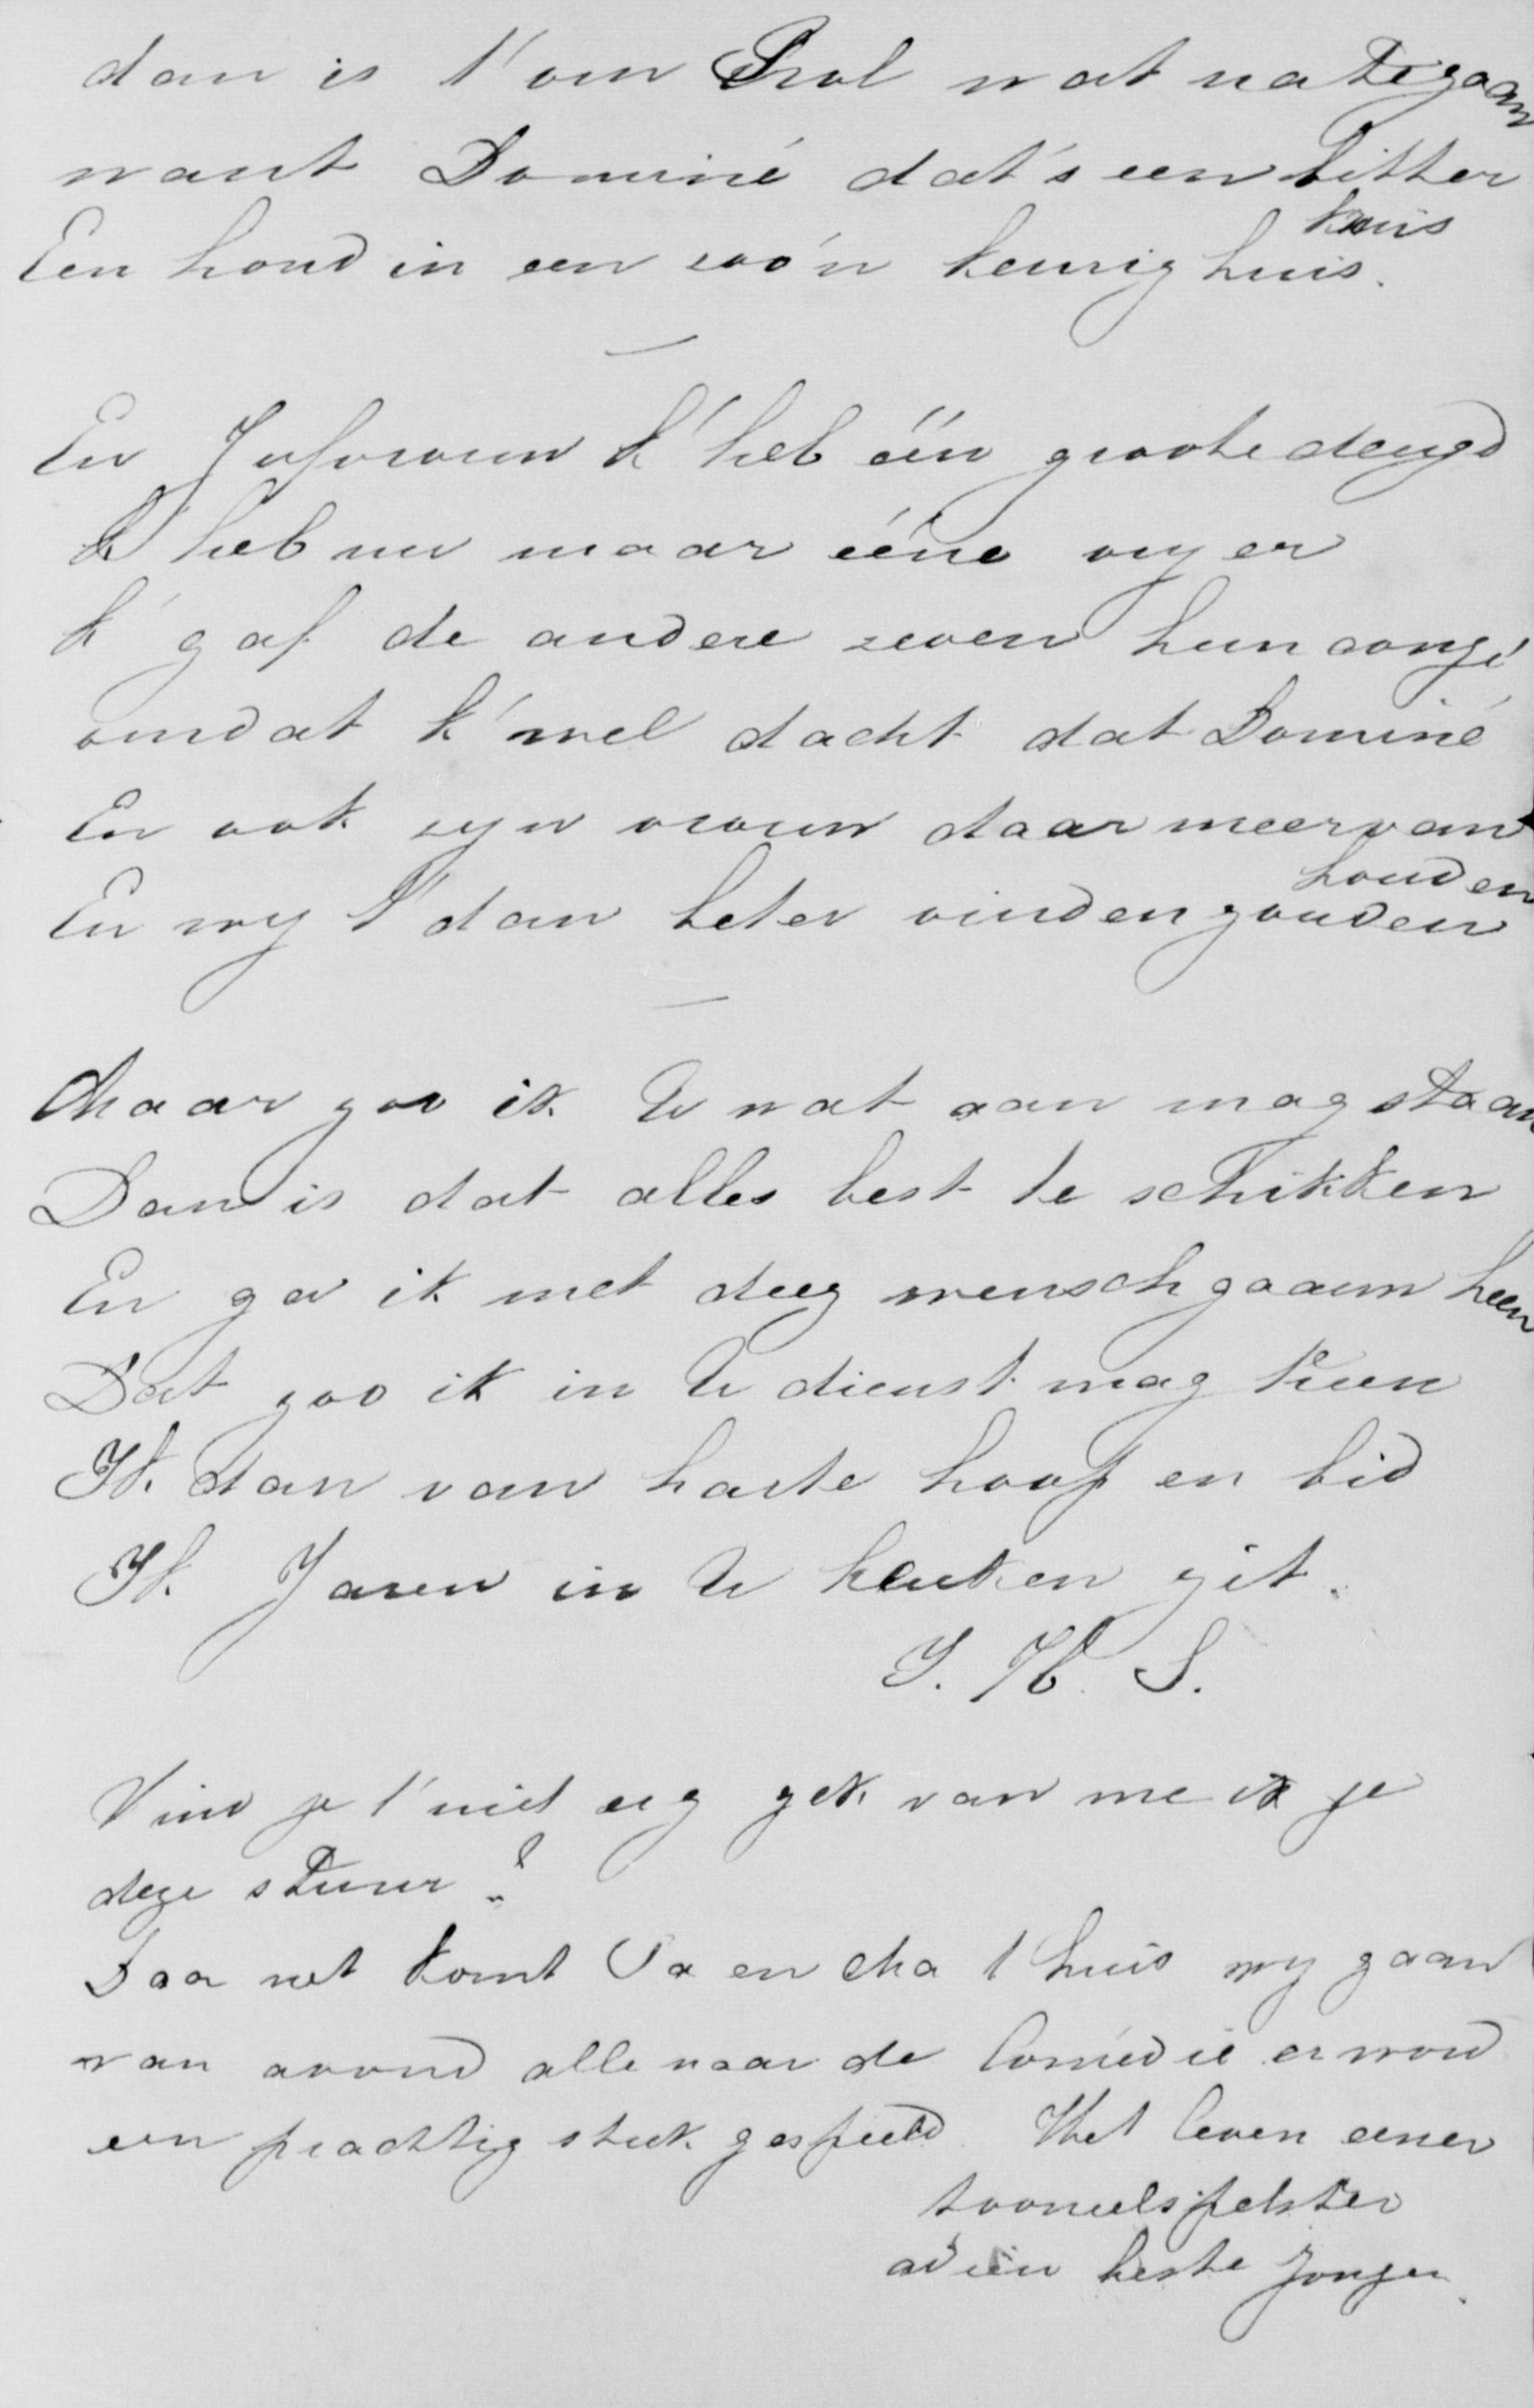 dan is t'om Prul wat nategaan
want Dominé dat's een bitter
kruis
Een hond in een zoo'n keurig huis.
En Jufvrouw k'heb één groote deugd
k'heb nu maar ééne vryer
k'gaf de andere zeven hun congé
omdat k'wel dacht dat Dominé
En ook zyn vrouw daar meer van
houden
En wy t'dan beter vinden zouden
Maar zoo ik U wat aan mag staan
Dan is dat alles best te schikken
En ga ik met deez wensch gaauw heen
Dat zoo ik in U dienst mag treen
Ik dan van harte hoop en bid
Ik Jaren in U keuken zit.
J. H. S.
Vind je t'niet erg gek van me ik je
deze stuur?
Daar net komt Pa en Ma t huis wy gaan
van avond alle naar de Comédie er word
een prachtig stuk gespeeld Het leven eener
tooneelspelster
adieu beste Jongen.